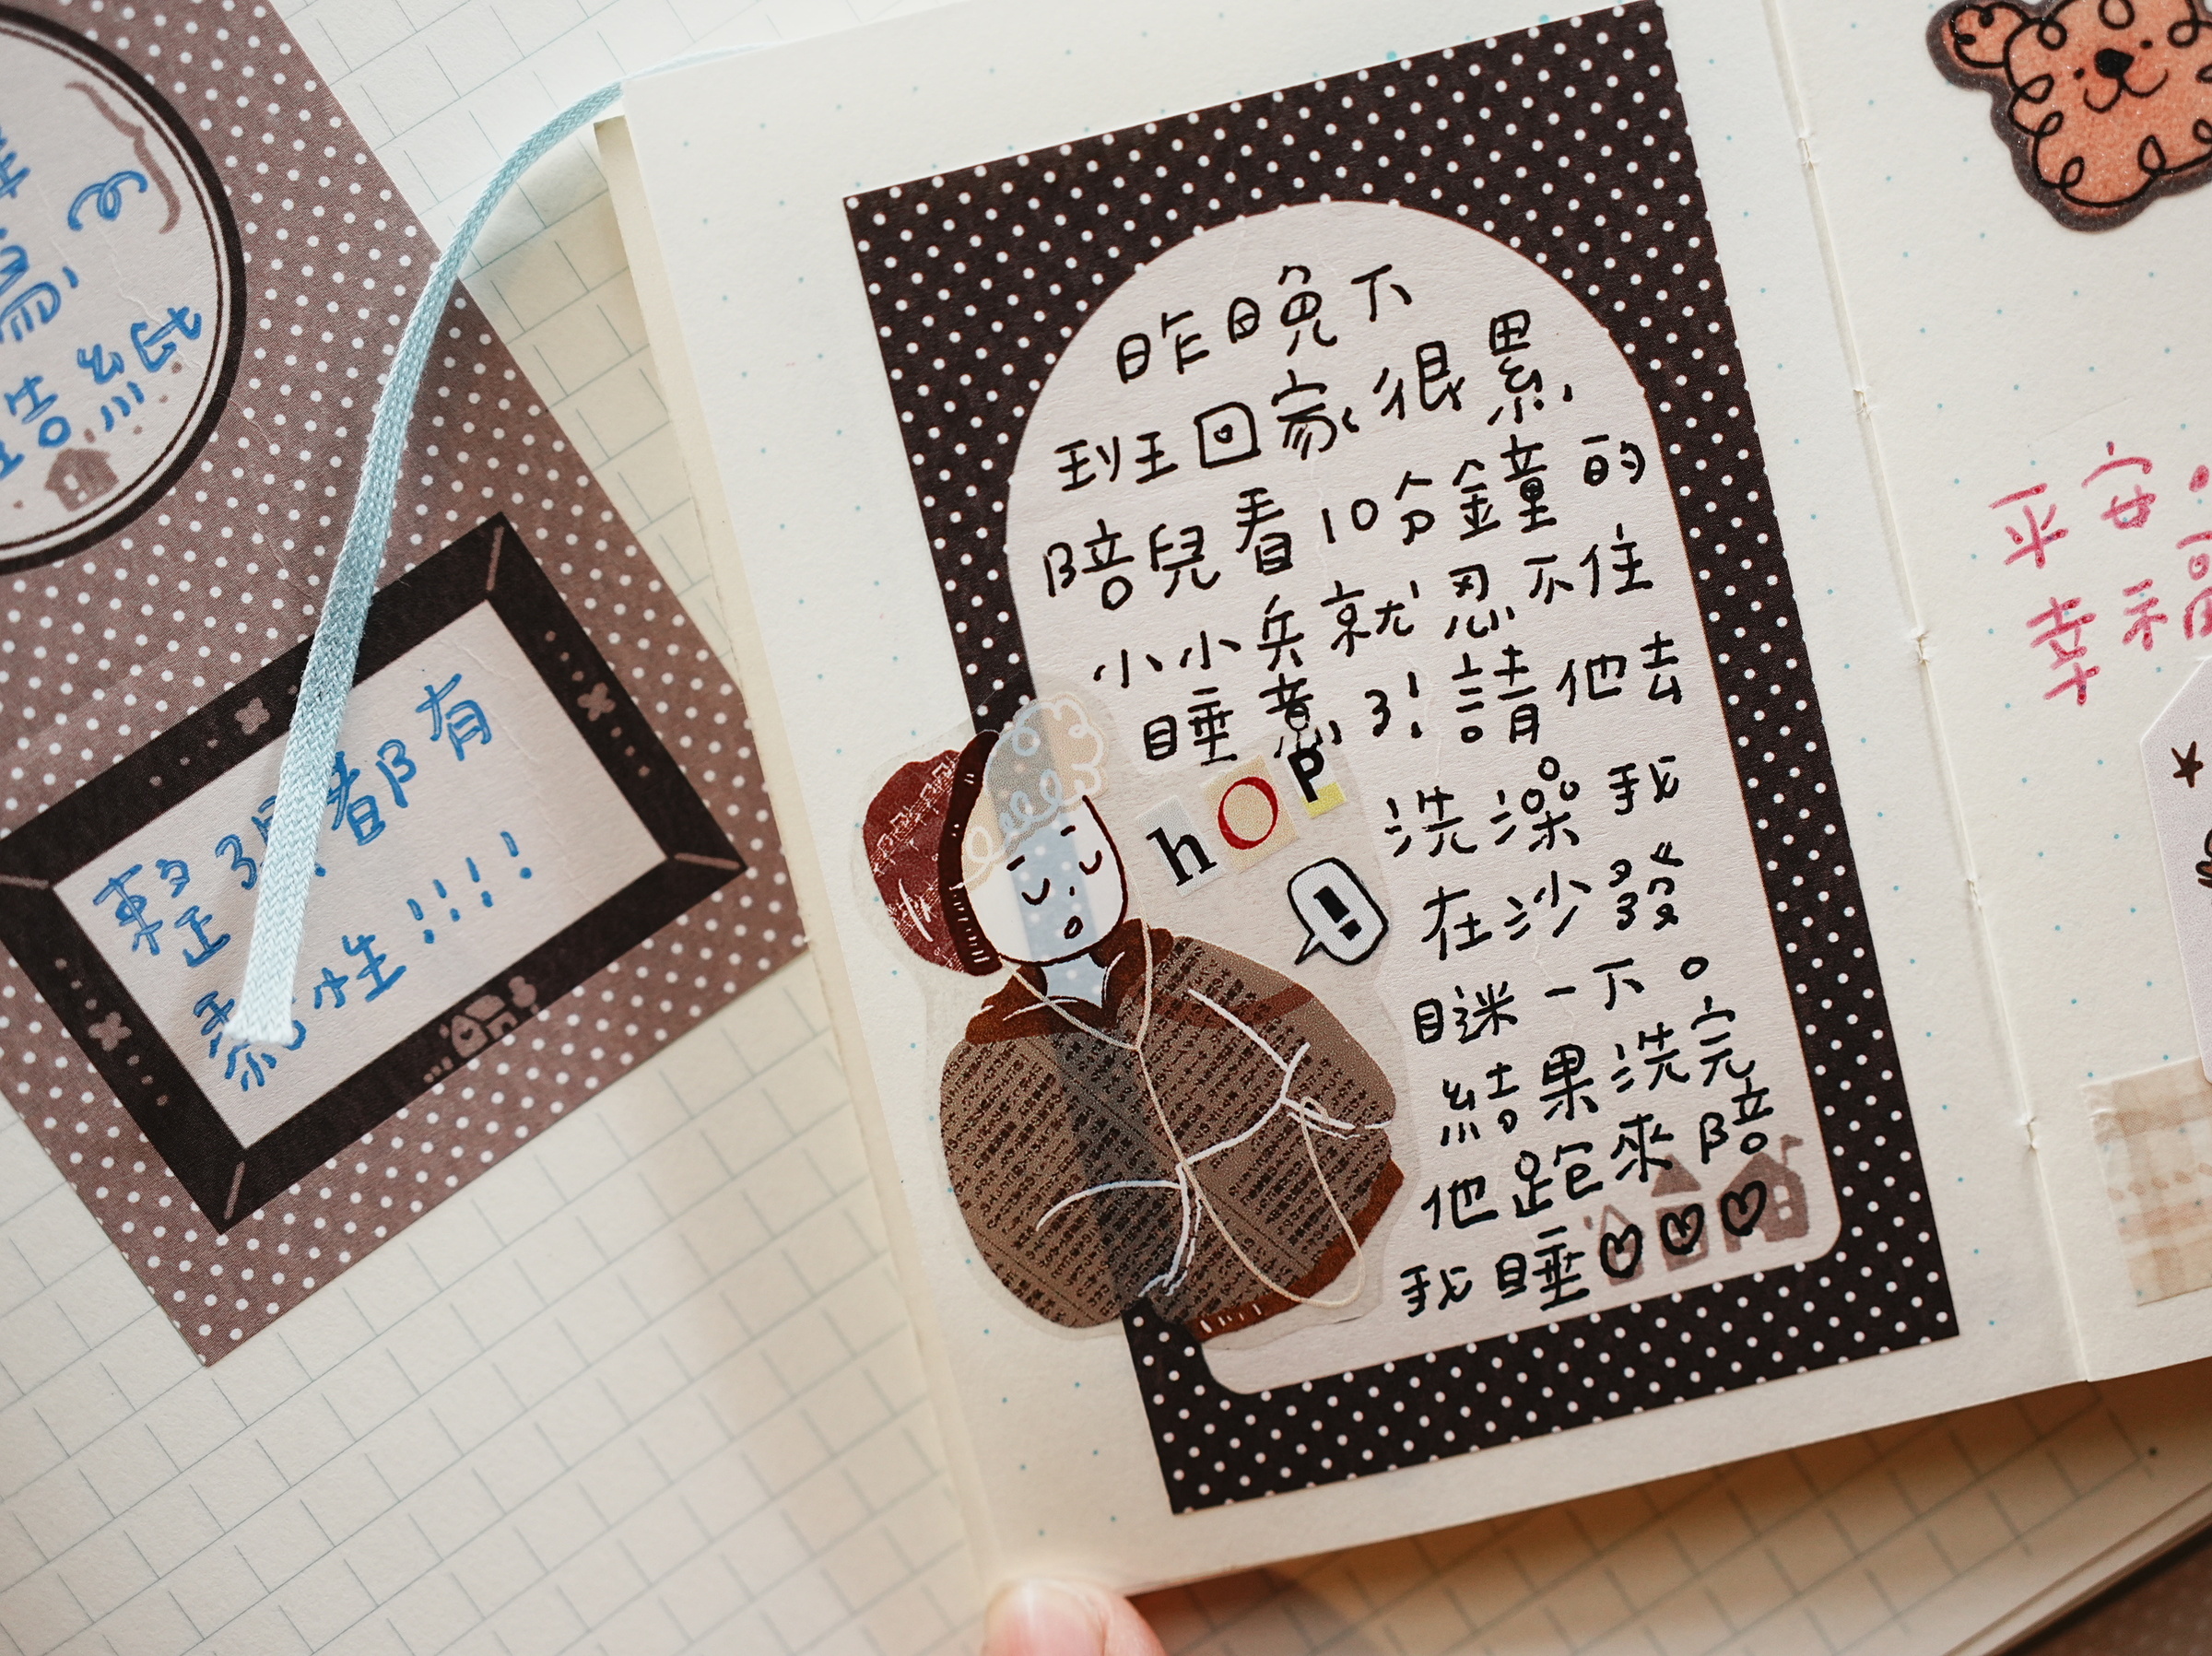 昨晚下
班回家很累,
陪兒看10分鐘的
小小兵就忍不住
睡意了!請他去
洗澡我
在沙發
瞇一下。
結果洗完
他跑來陪
我睡♡♡♡
hOP
!
整 都有
性!!!!
平安
幸福